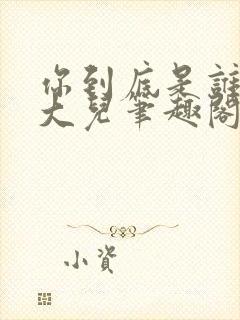 你到底是誰
大兒筆趣閣
小資